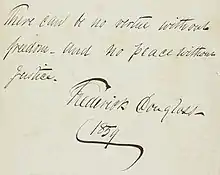 There can be no virtue without
freedom - and no peace without
Justice -
Frederick Douglass -
1859